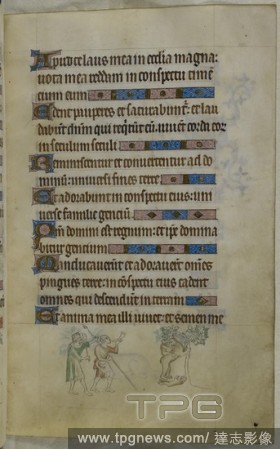 Apud te laus mea in ecclia magna:
vota mea reddam in conspectu timēt
cium eum
Edent pauperes et saturabunt̄: et lau
dabūt dñm qui reqrūt eū: vivēt corda eor
in seculum seculi
Reminiscentur et convertentur ad do
minū: universi fines terre
Et adorabunt in conspectu eius: uni
verse familie genciū
Qm̄ domini est regnum: et ip̄e domina
bitur gencium
Manducaverūt et adoraverūt omēs
pingues terre: in cōspectu eius cadent
omnes qui descendūt in terram
Et anima mea illi vivet: et semen me
TPG
www.tpgnews.com/達志影像